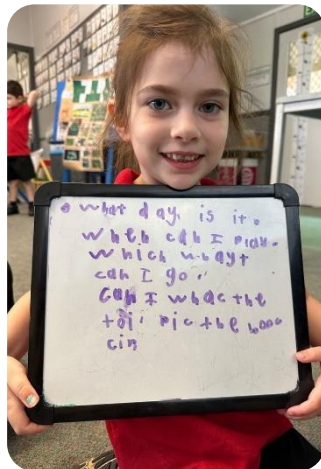 what day is it.
when can I play.
which whayt
can I go.
can I whac the
toi. pic the booc
cin